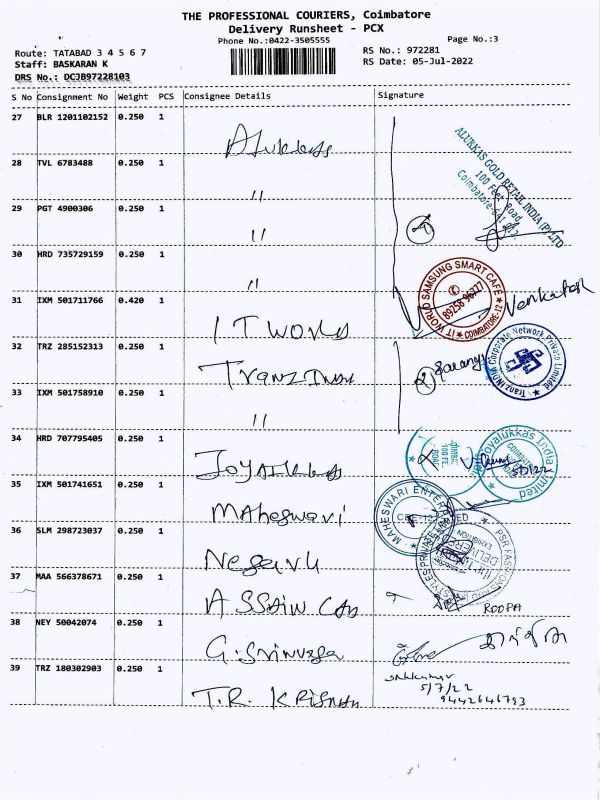 THE PROFESSIONAL COURIERS, Coimbatore
Delivery Runsheet - PCX
Phone No.:0422-3505555
Page No.:3
Route: TATABAD 3 4 5 6 7
RS No.: 972281
Staff: BASKARAN K
RS Date: 05-Jul-2022
DRS No.: DCJB97228103
S No Consignment No Weight PCS Consignee Details Signature
27 BLR 1201102152 0.250 1 Alukkas
28 TVL 6783488 0.250 1 "
29 PGT 4900306 0.250 1 "
30 HRD 735729159 0.250 1 "
31 IXM 501711766 0.420 1 IT World
32 TRZ 285152313 0.250 1 Tranz India
33 IXM 501758910 0.250 1 "
34 HRD 707795405 0.250 1 Joyalukkas
35 IXM 501741651 0.250 1 Maheswari
36 SLM 298723037 0.250 1
37 MAA 566378671 0.250 1
38 NEY 50042074 0.250 1
39 TRZ 180302903 0.250 1 T.R. KRISNAN
ALUKKAS GOLD RETAIL INDIA (P) LTD
100 Feet Road,
4
IT WORLD SAMSUNG SMART CAFE
89258 96227
COIMBATORE-12
Venkatesh
2
Tranz India Corporate Network Private Limited
Joyalukkas India Limited
5/7/22
MAHESWARI ENTER
ROOPA
5/7/22
9442646793